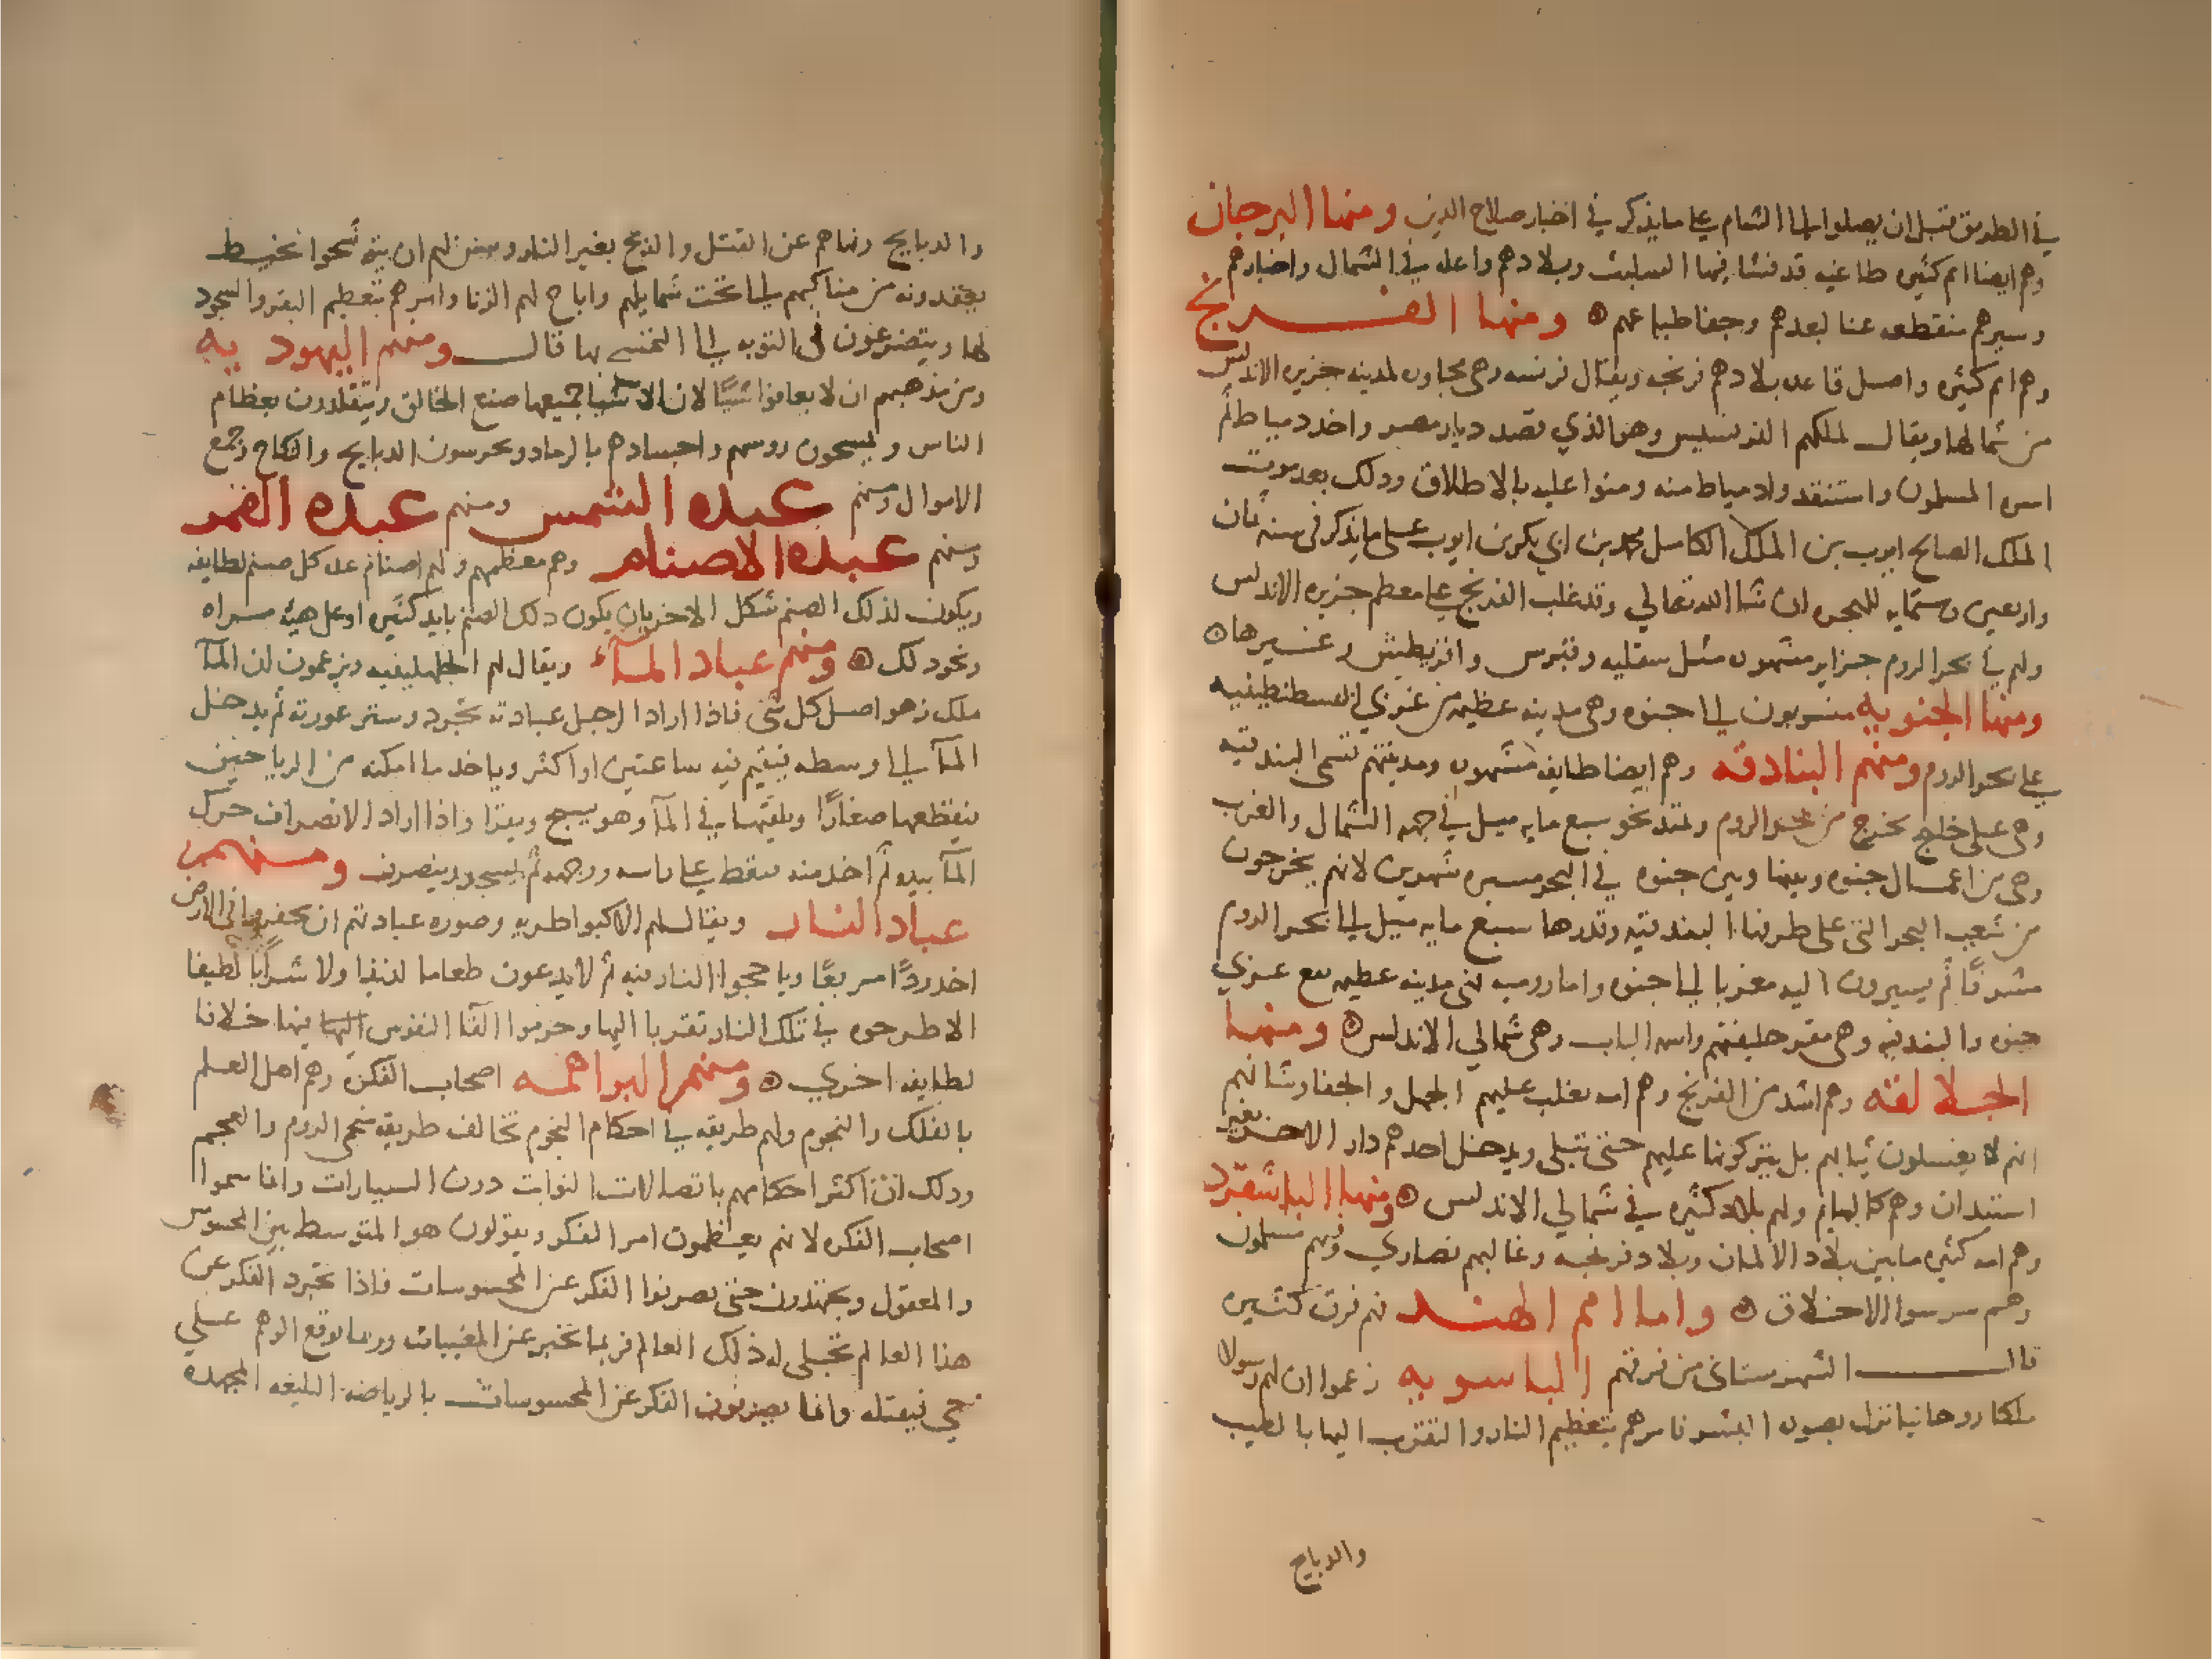 في الطريق قبل ان يصلوا الى الشام على ما يذكر في اخبار صلاح الدين ومنها البرجان
وهم ايضا امم كثيره طاغيه قد فشا فيها التثليث وبلادهم واغله في الشمال واخبارهم
وسيرهم منقطعه عنا لبعدهم وجفا طباعهم ۞ ومنها الفرنج
وهم امم كثيره واصل قاعده بلادهم فرنجه ويقال فرنسه وهي مجاوره لمدينه جزيره الاندلس
من شمالها ويقال لملكهم الفرنسيس وهو الذي قصد ديار مصر واخد دمياط ثم
اسره المسلمون واستنقدوا دمياط منه ومنوا عليه بالاطلاق ودلك بعد موت
الملك الصالح ايوب بن الملك الكامل محمد بن ابي بكر بن ايوب على ما يذكر في سنه ثمان
واربعين وستمايه للهجره ان شا الله تعالي وقد غلب الفرنج على معظم جزيره الاندلس
ولهم في بحر الروم جزاير مشهوره مثل سقليه وقبرس واقريطش وغيرها ۞
ومنها الجنويه منسوبون الى جنوه وهي مدينه عظيمه من غربي القسطنطينيه
على بحر الروم ومنهم البنادقه وهم ايضا طايفه مشهوره ومدينتهم تسمى البندقيه
وهي على خليج يخرج من بحر الروم ويمتد نحو سبع مايه ميل في جهه الشمال والغرب
وهي من اعمال جنوه وبينها وبين جنوه في البحر مسيره شهرين لانهم يخرجون
من شعب البحر التي على طرفها البندقيه وقدرها سبع مايه ميل الى بحر الروم
مشرقا ثم يسيرون اليه مغربا الى جنوه واما روميه فهي مدينه عظيمه مع غربي
جنوه والبندقيه وهي مقر خليفتهم واسمه الباب وهي شمالي الاندلس ۞ ومنها
الجلالقه وهم اشد من الفرنج وهم امه يغلب عليهم الجهل والجفا ومن شانهم
انهم لا يغسلون ثيابهم بل يتركونها عليهم حتى تبلى ويدخل احدهم دار الاخر بغير
استيدان وهم كالبهايم ولهم بلاد كثيره في شمالي الاندلس ۞ ومنها الباشقرد
وهم امه كثيره ما بين بلاد الالمان وبلاد فرنجه وغالبهم نصاري وفيهم مسلمون
وهم شرسوا الاخلاق ۞ واما امم الهند فهم فرق كثيره
قال الشهرستاني من فرقهم الباسويه زعموا ان لهم رسولا
ملكا روحانيا نزل بصوره البشر فامرهم بتعظيم النار والتقرب اليها بالطيب
والدبايح
والدبايح ونهاهم عن القتل والذبح بغير النار وسن لهم ان يتوشحوا بخيط
يعقدونه من مناكبهم الى تحت شمايلهم واباح لهم الزنا وامرهم بتعظيم البقر والسجود
لها ويتضرعون في التوبه الى التمسح بها قال ومنهم اليهوديه
ومن مذهبهم ان لا يعافوا شيًا لان الاشيا جميعها صنع الخالق ويتقلدون بعظام
الناس ويمسحون روسهم واجسادهم بالرماد ويحرمون الدبايح والنكاح وجمع
الاموال ومنهم عبده الشمس ومنهم عبده القمر
ومنهم عبده الاصنام وهم معظمهم ولهم اصنام عده كل صنم لطايفه
ويكون لذلك الصنم شكل الاخر بان يكون دلك الصنم بايد كثيره او على هيه مراه
ونحو دلك ۞ ومنهم عباد المآء ويقال لهم الجلهكينيه ويزعمون ان المآ
ملك وهو اصل كل شي فاذا اراد الرجل عبادته تجرد وستر عورته ثم يدخل
المآ الى وسطه فيقيم فيه ساعتين او اكثر وياخد ما امكنه من الرياحين
فيقطعها صغارًا ويلقيها في المآ وهو يسبح ويقرا واذا اراد الانصراف حرك
المآ بيده ثم اخد منه فنقط على راسه ووجهه ثم يسجد وينصرف ومنهم
عباد النار ويقال لهم الاكنواطريه وصوره عبادتهم ان يحفروا في الارض
اخدودًا مربعًا وياججوا النار فيه ثم لا يدعون طعاما لذيذا ولا شرابًا لطيفا
الا طرحوه في تلك النار تقربا اليها وحرموا القآ النفوس فيها خلافا
لطايفه اخري ۞ ومنهم البراهمه اصحاب الفكره وهم اهل العلم
بالفلك والنجوم ولهم طريقه في احكام النجوم تخالف طريقه منجمي الروم والعجم
ودلك ان اكثر احكامهم باتصالات الثوابت دون السيارات وانما سموا
اصحاب الفكره لانهم يعظمون امر الفكر ويقولون هو المتوسط بين المحسوس
والمعقول ويجتهدون حتى يصرفوا الفكر عن المحسوسات فاذا تجرد الفكر عن
هذا العالم تجلى له ذلك العالم فربما يخبر عن المغيبات وربما يوقع الوهم علي
حي فيقتله وانما يصرفون الفكر عن المحسوسات بالرياضه البليغه المجهده